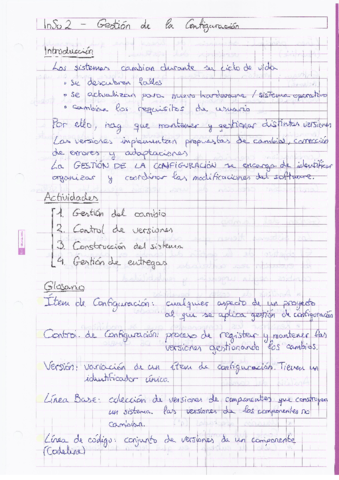 InSo 2 - Gestión de la Configuración
Introducción
Los sistemas cambian durante su ciclo de vida
• se descubren fallos
• se actualizan para nuevo hardware / sistema operativo
• cambian los requisitos de usuario
Por ello, hay que mantener y gestionar distintas versiones
Las versiones implementan propuestas de cambios, corrección
de errores y adaptaciones
La GESTIÓN DE LA CONFIGURACIÓN se encarga de identificar
organizar y coordinar las modificaciones del software.
Actividades
1. Gestión del cambio
2. Control de versiones
3. Construcción del sistema
4. Gestión de entregas
Glosario
Ítem de Configuración: cualquier aspecto de un proyecto
al que se aplica gestión de configuración
Control de Configuración: proceso de registrar y mantener las
versiones gestionando los cambios.
Versión: variación de un ítem de configuración. Tienen un
identificador único.
Línea Base: colección de versiones de componentes que construyen
un sistema. Las versiones de los componentes no
cambian.
Línea de código: conjunto de versiones de un componente
(Codeline)